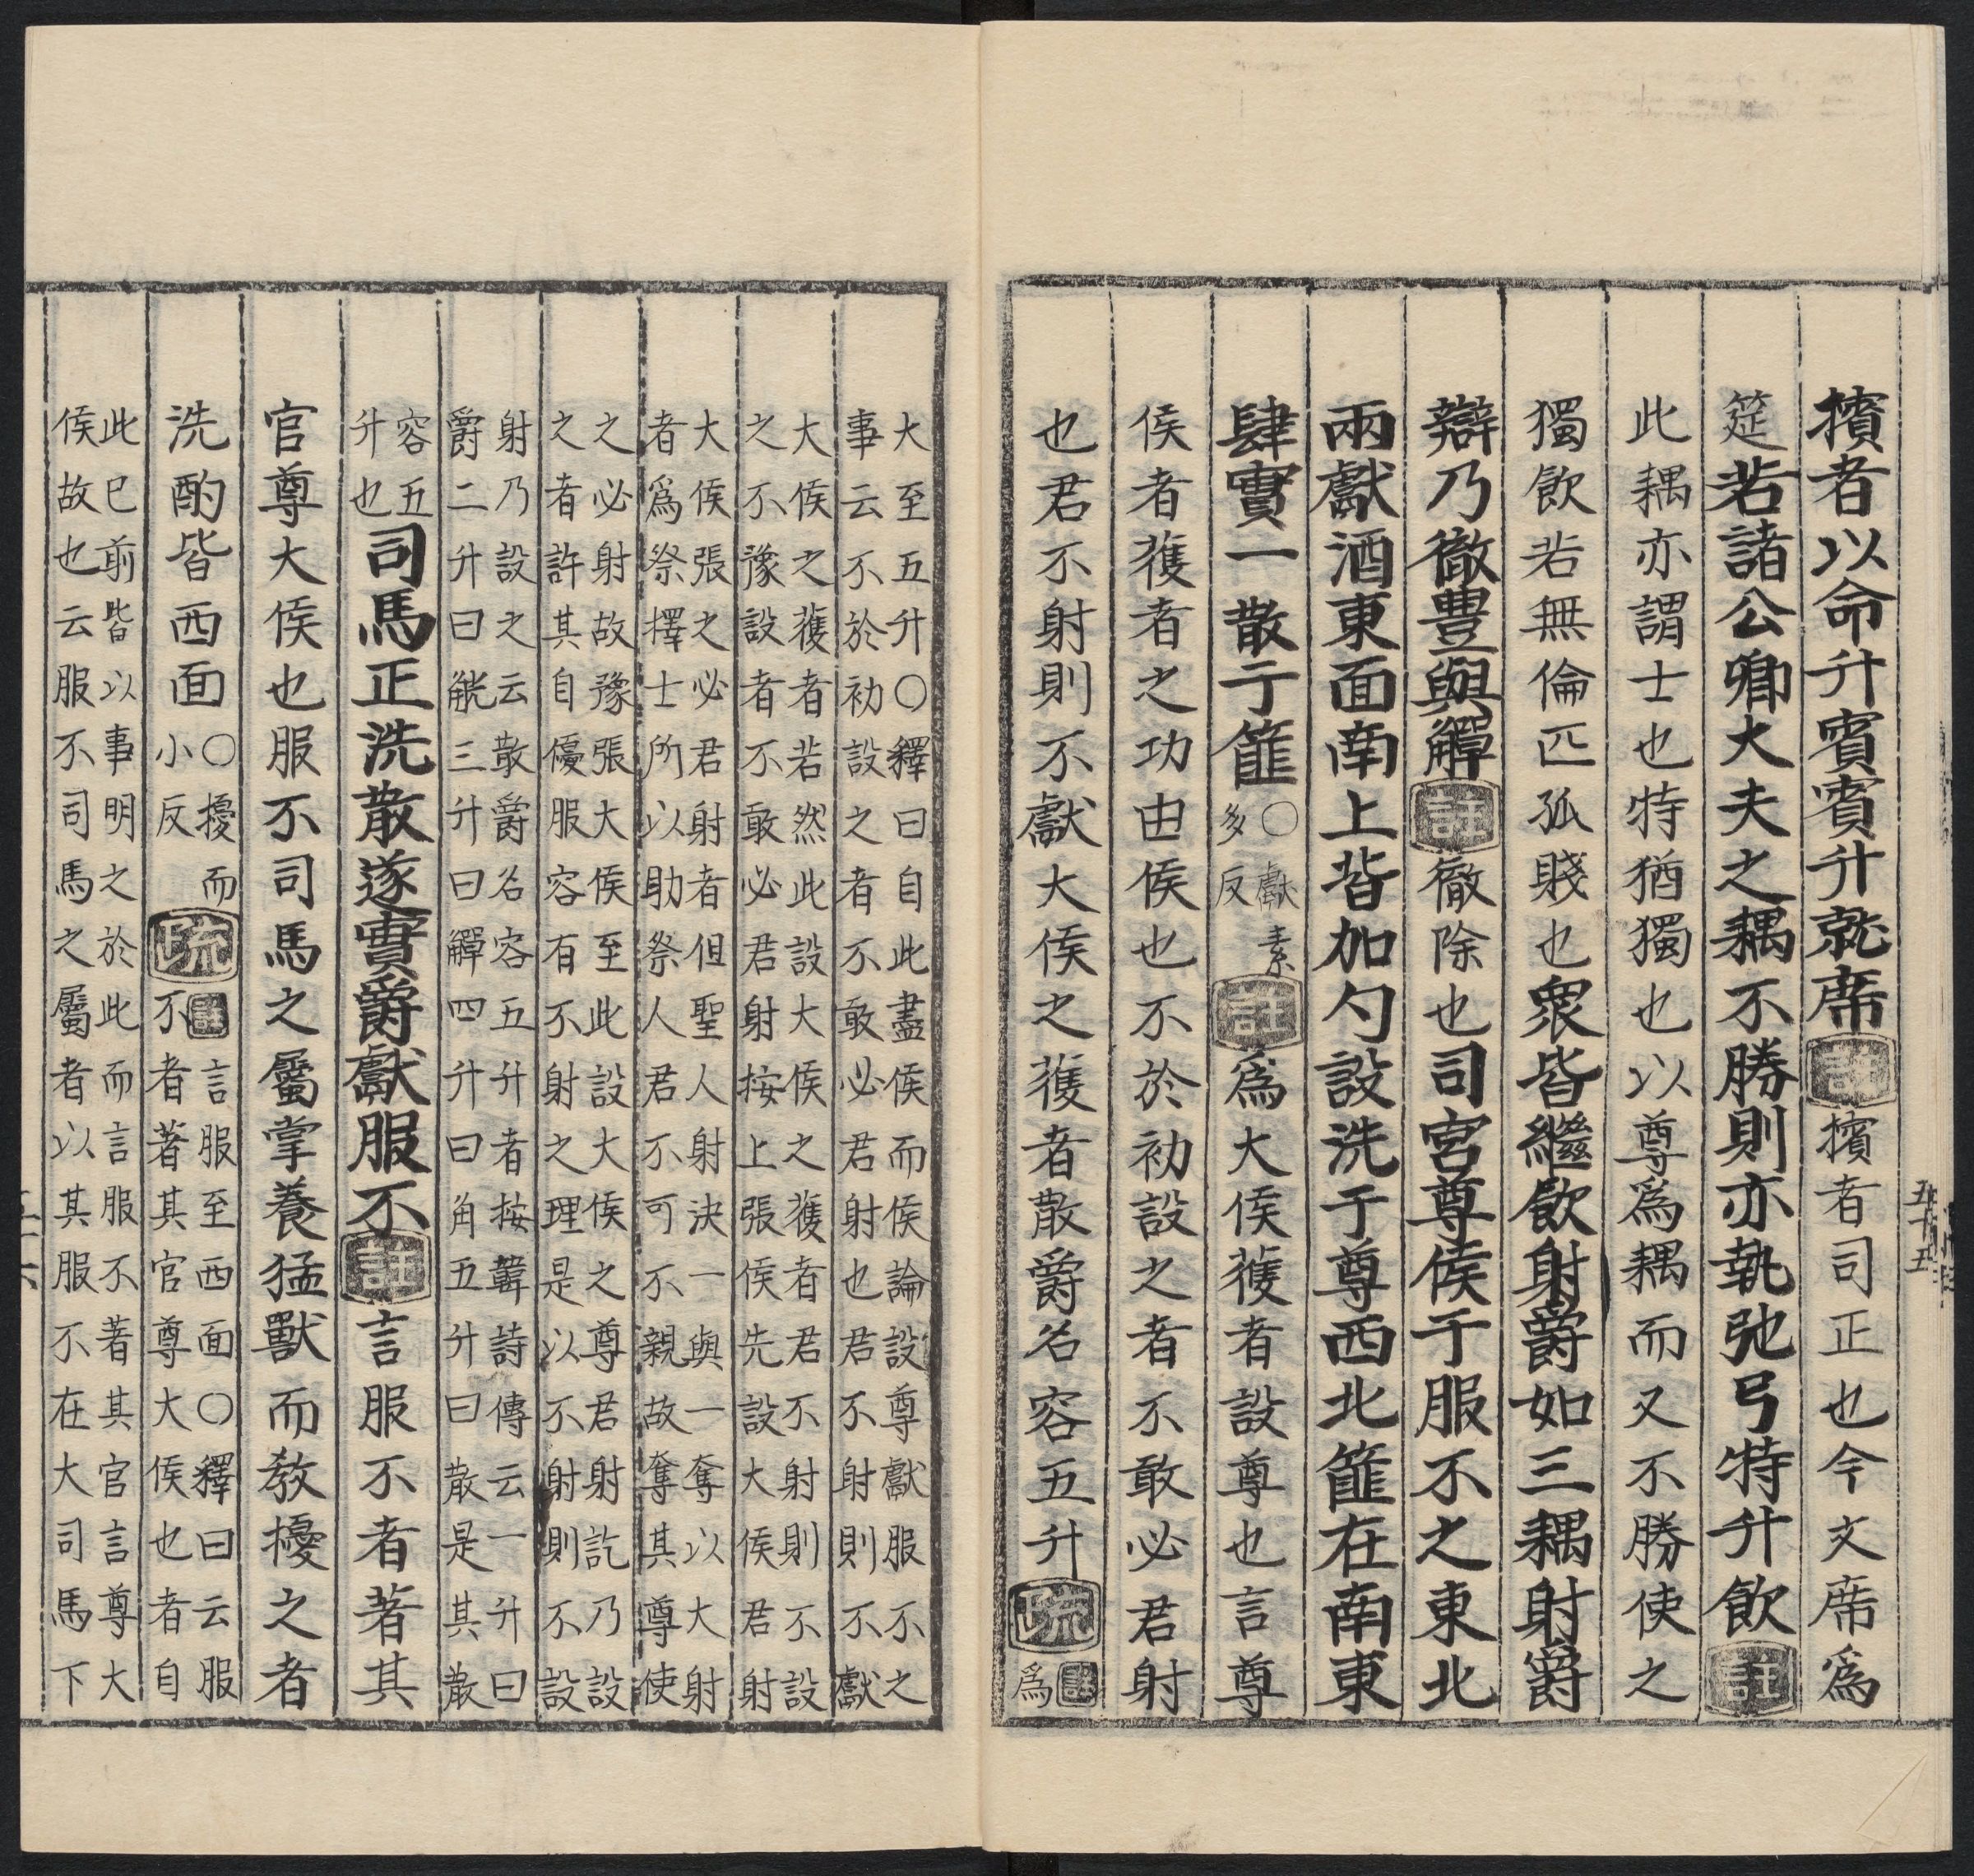 擯者以命升賓賓升就席註擯者司正也今文席爲
筵若諸公卿大夫之耦不勝則亦執弛弓特升飲註
此耦亦謂士也特猶獨也以尊爲耦而又不勝使之
獨飲若無倫匹孤賤也衆皆繼飲射爵如三耦射爵
辯乃徹豊與觶註徹除也司宮尊侯于服不之東北
兩獻酒東面南上皆加勺設洗于尊西北篚在南東
肆實一散于篚〇獻素多反註爲大侯獲者設尊也言尊
侯者獲者之功由侯也不於初設之者不敢必君射
也君不射則不獻大侯之獲者散爵名容五升疏註爲
大至五升〇釋曰自此盡侯而侯論設尊獻服不之
事云不於初設之者不敢必君射也君不射則不獻
大侯之獲者若然此設大侯之獲者君不射則不設
之不豫設者不敢必君射按上張侯先設大侯君射
大侯張之必君射者但聖人射決一與一奪以大射
者爲祭擇士所以助祭人君不可不親故奪其尊使
之必射故豫張大侯至此設大侯之尊君射訖乃設
之者許其自優服容有不射之理是以不射則不設
射乃設之云散爵名容五升者按韓詩傳云一升曰
爵二升曰觥三升曰觶四升曰角五升曰散是其散
容五升也司馬正洗散遂實爵獻服不註言服不者著其
官尊大侯也服不司馬之屬掌養猛獸而教擾之者
洗酌皆西面〇擾而小反疏註言服至西面〇釋曰云服
不者著其官尊大侯也者自
此已前皆以事明之於此而言服不著其官言尊大
侯故也云服不司馬之屬者以其服不在大司馬下
五十五